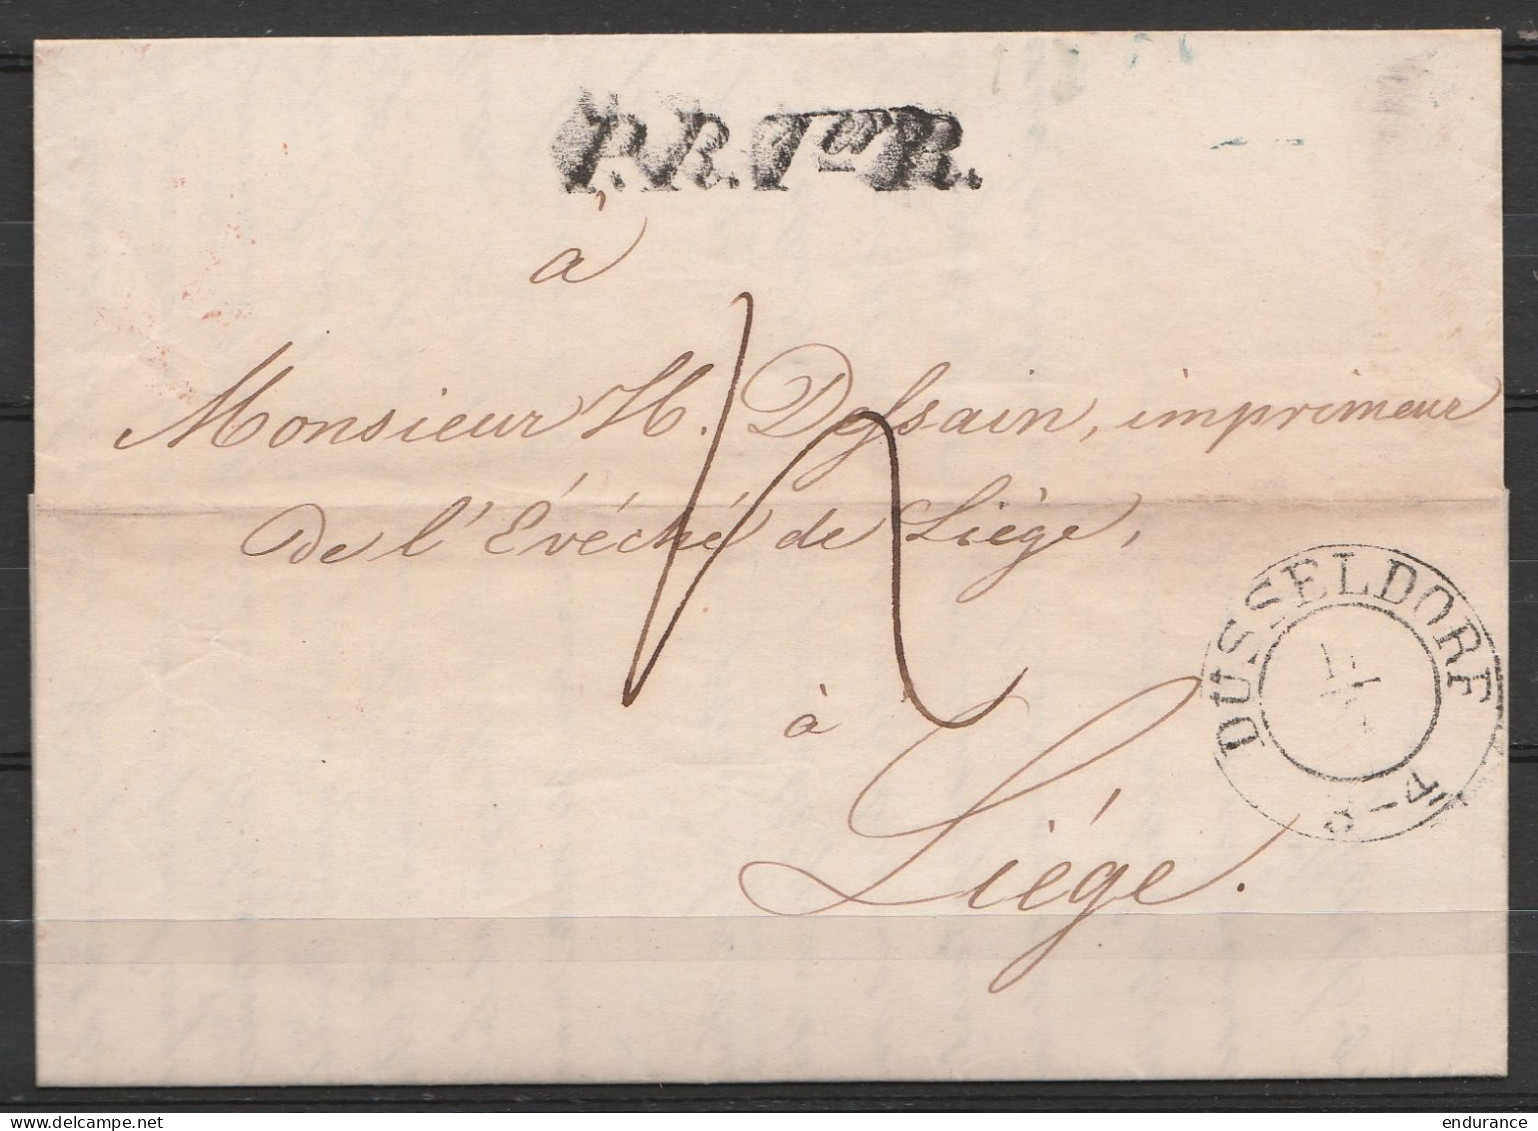 P.R.1er R.
à
Monsieur H. Dessain, imprimeur
de l'Evéché de Liége,
à
Liége.
DUSSELDORF
endurance